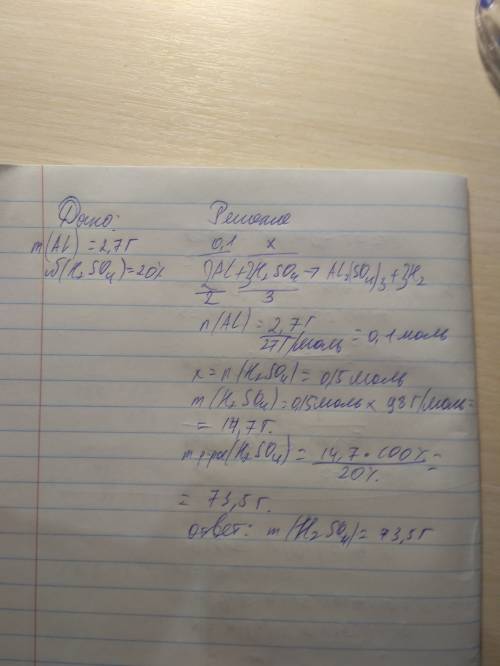 Дано:
Решение
m(Al) = 2,7г
ω(H₂SO₄) = 20%
0,1 x
2Al + 3H₂SO₄ → Al₂(SO₄)₃ + 3H₂
2 3
n(Al) = 2,7г / 27г/моль = 0,1 моль
x = n(H₂SO₄) = 0,15 моль
m(H₂SO₄) = 0,15 моль × 98 г/моль =
= 14,7 г.
m р-ра(H₂SO₄) = 14,7 · 100% / 20% =
= 73,5 г.
ответ: m(H₂SO₄) = 73,5 г